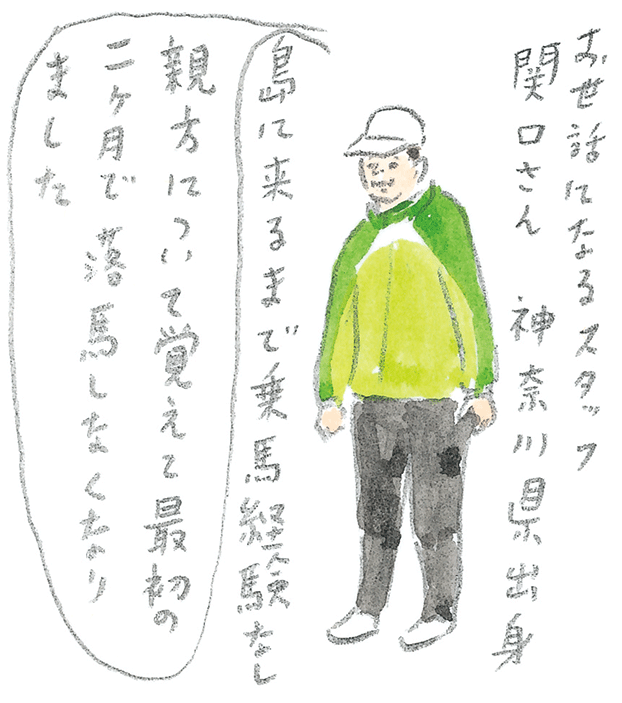 お世話になるスタッフ
関口さん 神奈川県出身
島に来るまで乗馬経験なし
親方について覚えて最初の
二ヶ月で落馬しなくなり
ました